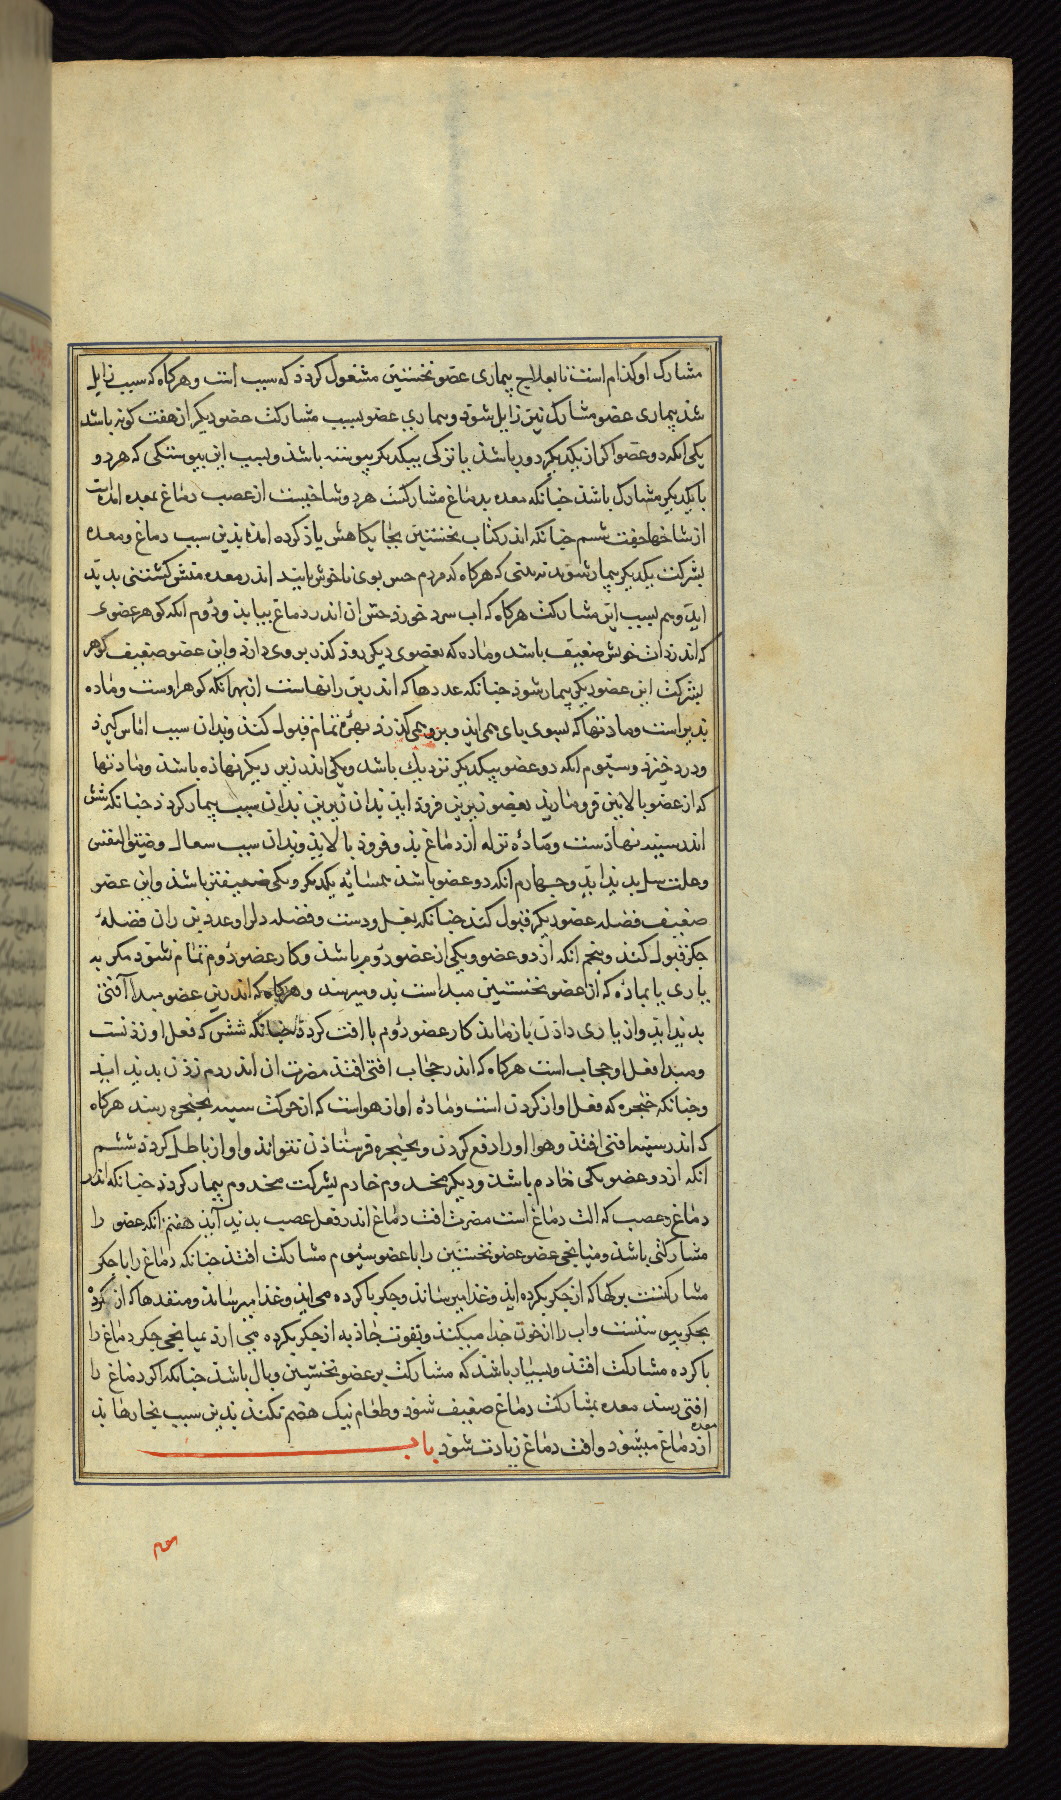 مشارک او کدام است تا بعلاج بیماری عضو نخستین مشغول کردذ که سبب است و هرکاه که سبب زایل
شد بیماری عضو مشارک نیز زایل شوذ و بیماری عضو بسبب مشارکت عضو دیکر از هفت کونه باشد
یکی انکه دو عضو اکر از یکدیکر دور باشذ یا نزدیکی بیکدیکر پیوسته باشذ و بسبب این پیوستکی که هر دو
با یکدیکر مشارک باشذ جنانکه معده بدماغ مشارکست هر دو شاخیست از عصب دماغ بمعده امدست
از شاخها جفت ششم جنانکه اندر کتاب نخستین بجایکاهش یاذ کرده امذه بذین سبب دماغ و معده
بشرکت یکدیکر بیمار شوند نه بینی که هرکاه که مردم حس بوی ناخوش یابند اندر معده منش کشتنی بدیذ
ایذ و هم بسبب این مشارکت هرکاه که اب سرد خورذ حس ان اندر دماغ بیابذ و دوم انکه کوهر عضوی
که اندر ذات خویش ضعیف باشد و ماده که بعضوی دیکر روذ کذر بر وی دارذ و این عضو ضعیف کوهر
بشرکت این عضو دیکر بیمار شوذ جنانکه غددها که اندر بن رانهاست از بهر انکه کوهر او سست و ماده
بذیر است و مادتها که بسوی پای همی ایذ و برو همی کذرذ بهره تمام قبول کند و بدان سبب اماس کیرذ
و درد خیزذ و سیوم انکه دو عضو بیکدیکر نزدیک باشد و یکی اندر زیر دیکر نهاذه باشذ و ماذتها
که از عضو بالایین فروماریذ بعضو زیرین فروذ ایذ بدان زیرین بدان سبب بیمار کردذ جنانکه شش
اندر سینه نهاذست و ماده نزله از دماغ بذو فروذ بالایذ و بدان سبب سعال و ضیق النفس
و علت سل بدیذ ایذ و جهارم انکه دو عضو باشذ همسایه یکدیکر و یکی ضعیفتر باشذ و این عضو
ضعیف فضله عضو دیکر قبول کند جنانکه بغل و دست و فضله دل را و غدد بن ران فضله
جکر قبول کند و پنجم انکه از دو عضو و یکی از عضو دوم باشذ و کار عضو دوم تمام نشوذ مکر به
یاری یا بماده که از عضو نخستین مبداست بذو میرسذ و هرکاه که اندرین عضو مبدا آفتی
بدیذ ایذ و از یاری داذن بازماند کار عضو دوم با افت کردذ جنانکه شش که فعل او زدنست
و مبدا فعل او حجاب است هرکاه که اندر حجاب افتی افتذ مضرت ان اندر دم زذن بدیذ ایذ
و جنانکه حنجره که فعل او از کردن است و ماده اواز هواست که از حرکت سینه بحنجره رسذ هرکاه
که اندر سینه افتی افتذ و هوا او را دفع کردن و بحنجره فرستاذن نتوانذ و اواز باطل کردذ ششم
انکه از دو عضو یکی خادم باشذ و دیکر مخدوم خادم بشرکت مخدوم بیمار کردذ جنانکه اندر
دماغ و عصب که الت دماغ است مضرت افت دماغ اندر فعل عصب بدیذ آیذ هفتم انکه عضو را
مشارکتی باشذ و میانجی عضو عضو نخستین را با عضو سیوم مشارکت افتذ جنانکه دماغ را با جکر
مشارکتست برکها که از جکر بکرده ایذ و غذا میرساند و جکر با کرده می ایذ و غذا میرساند و منفذها که از کرده
بجکر پیوستست و اب را از خون جذا میکند و بقوت جاذبه از جکر بکرده می ارذ بمیانجی جکر دماغ را
با کرده مشارکت افتذ و بسیار باشذ که مشارکت بر عضو نخستین وبال باشذ جنانکه اکر دماغ را
افتی رسذ معده بمشارکت دماغ ضعیف شوذ و طعام نیک هضم نکند بذین سبب بخارها بذ
معده
از دماغ میشوذ و افت دماغ زیادت شوذ باب